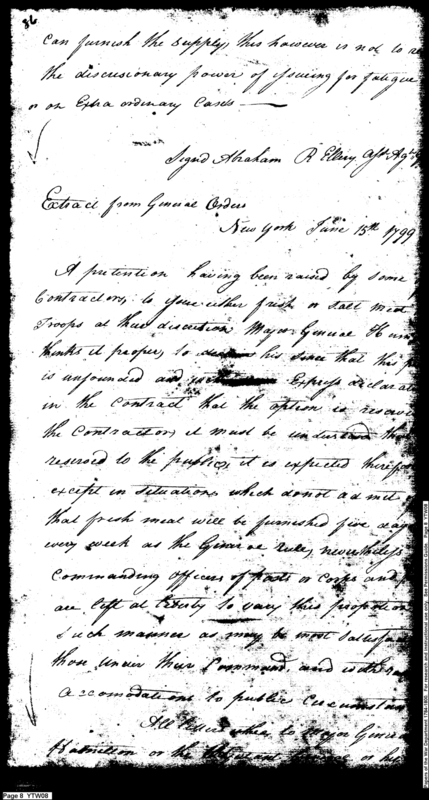 86
can furnish the supply, this however is not to re
the discresionary power of issuing for fatigue
or on Extra ordinary Cases
Signd Abraham R Ellery Asst Agt
Extract from General Orders
New York June 15th 1799
A pretention having been raised by some
Contractors, to issue either fresh or salt meat
Troops at their discretion Major General Ham
thinks it proper, to his sense that this p
is unfounded and Express declarat
in the contract that the option is reserv
the Contractor, it must be understood tha
reserved to the public, it is expected therefo
except in situations which do not admit
that fresh meat will be furnished five day
every week as the General rule, nevertheless
Commanding Officers of posts or corps and
are left at liberty to vary this proportion
such manner as may be most satisfac
those under their Command, and with
accomodations to public circumstan
All letters to Major Genera
Hamilton or the
Page 8 YTW08
Papers of the War Department 1784-1800. For research and instructional use only. See Permissions Guide. Page 8 YTW08